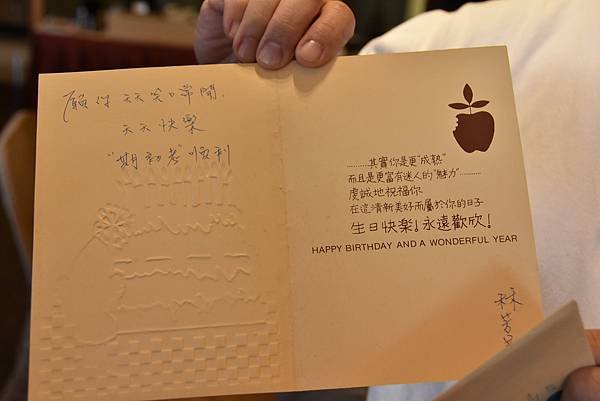 願你 天天笑口常開,
天天快樂
"期初考"順利
………其實你是更"成熟"
而且是更富有迷人的"魅力"………
虔誠地祝福你
在這清新美好而屬於你的日子
生日快樂！永遠歡欣！
HAPPY BIRTHDAY AND A WONDERFUL YEAR